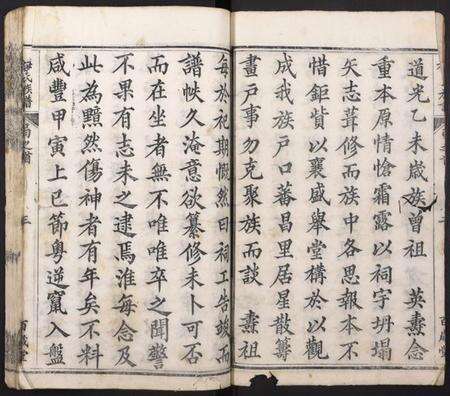 道光乙未歲族曾祖 英燾念
重本原情愴霜露以祠宇坍塌
矢志葺修而族中各思報本不
惜鉅貲以襄盛舉堂構於以觀
成我族戶口蕃昌里居星散籌
畫戶事勿克聚族而談 燾祖
每於祀期慨然曰祠工告竣而
譜帙久淹意欲纂修未卜可否
而在坐者無不唯唯卒之聞警
不果有志未之逮焉淮每念及
此為黯然傷神者有年矣不料
咸豐甲寅上巳節粵逆竄入盤
氏族譜
三
百歲堂
百歲堂